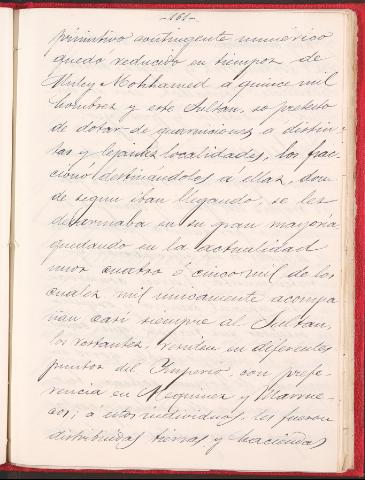 -161-
primitivo contingente numérico
quedo reducido en tiempos de
Muley Mohhamed a quince mil
hombres y este Sultan, so pretesto
de dotar de guarniciones a distin-
tas y lejanas localidades, los frac-
cionó destinandoles á ellas, don-
de segun iban llegando, se les
desarmaba en su gran mayoria
quedando en la actualidad
unos cuatro ó cinco mil de los
cuales mil unicamente acompa
ñan casi siempre al Sultan,
los restantes residen en diferentes
puntos del Imperio, con prefe-
rencia en Mequinez y Marrue-
cos; a estos individuos, les fueron
distribuidas tierras y haciendas